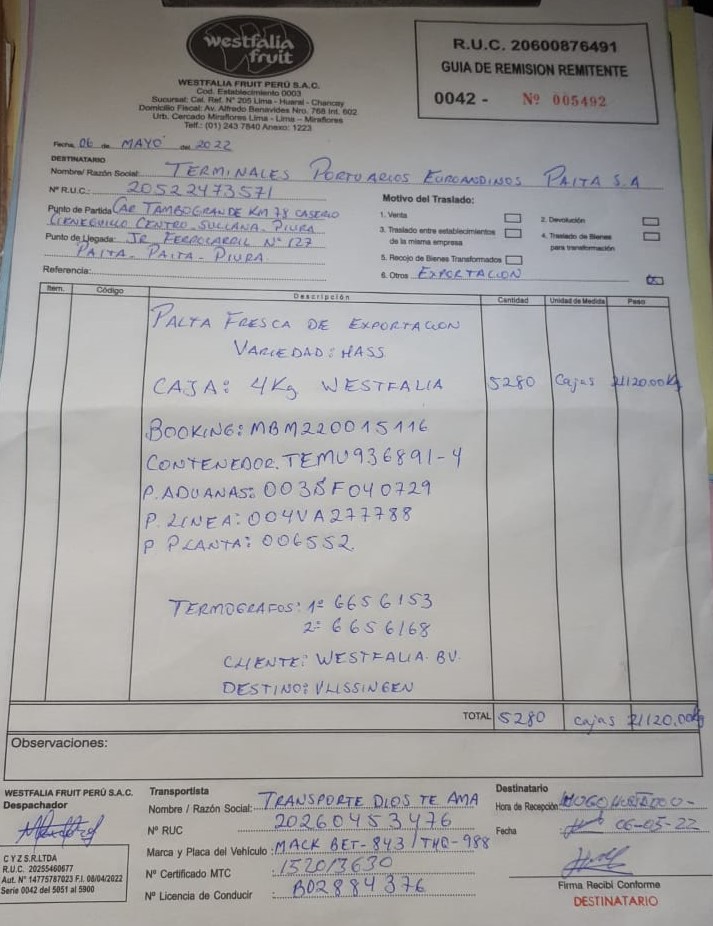 westfalia fruit
WESTFALIA FRUIT PERÚ S.A.C.
Cod. Establecimiento 0003
Sucursal: Cal. Ref. N° 205 Lima - Huaral - Chancay
Domicilio Fiscal: Av. Alfredo Benavides Nro. 768 Int. 602
Urb. Cercado Miraflores Lima - Lima - Miraflores
Telf.: (01) 243 7840 Anexo: 1223
R.U.C. 20600876491
GUIA DE REMISION REMITENTE
0042 - Nº 005492
Fecha, 06 de MAYO del 2022
DESTINATARIO
Nombre/ Razón Social: TERMINALES PORTUARIOS EUROANDINOS PAITA S.A
N° R.U.C.: 20522473571
Punto de Partida: CAR TAMBOGRANDE KM 78 CASERIO
CIENEGUILLO CENTRO - SULLANA - PIURA
Punto de Llegada: JR FERROCARRIL N° 127
PAITA - PAITA - PIURA
Referencia:
Motivo del Traslado:
1. Venta
2. Devolución
3. Traslado entre establecimientos de la misma empresa
4. Traslado de Bienes para transformación
5. Recojo de Bienes Transformados
6. Otros EXPORTACION
Item. Código Descripción Cantidad Unidad de Medida Peso
PALTA FRESCA DE EXPORTACION
VARIEDAD: HASS
CAJA: 4Kg WESTFALIA 5280 Cajas 21120.00Kg
BOOKING: MBM220015116
CONTENEDOR. TEMU936891-4
P. ADUANAS: 003BF040729
P. LINEA: 004VA277788
P PLANTA: 006552
TERMOGRAFOS: 1º 6656153
2º 6656168
CLIENTE: WESTFALIA BV.
DESTINO: VLISSINGEN
TOTAL 5280 cajas 21120.00Kg
Observaciones:
WESTFALIA FRUIT PERÚ S.A.C.
Despachador
C Y Z S.R.LTDA
R.U.C. 20255460677
Aut. N° 14775787023 F.I. 08/04/2022
Serie 0042 del 5051 al 5900
Transportista
Nombre / Razón Social: TRANSPORTE DIOS TE AMA
N° RUC 20260453476
Marca y Placa del Vehículo: MACK BET-843 / THQ-988
N° Certificado MTC : 152013630
N° Licencia de Conducir : B02884376
Destinatario
Hora de Recepción HUGO HURTADO
Fecha 06-05-22
Firma Recibí Conforme
DESTINATARIO